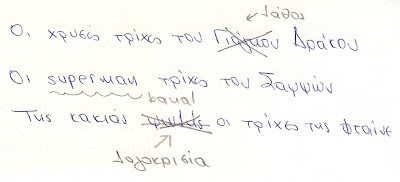 Λάθος
Οι χρυσές τρίχες του Γιάγκου Δράκου
Οι superman τρίχες του Σαμψών
banal
Της κακιάς ψωλής οι τρίχες της φταίνε
Λογοκρισία